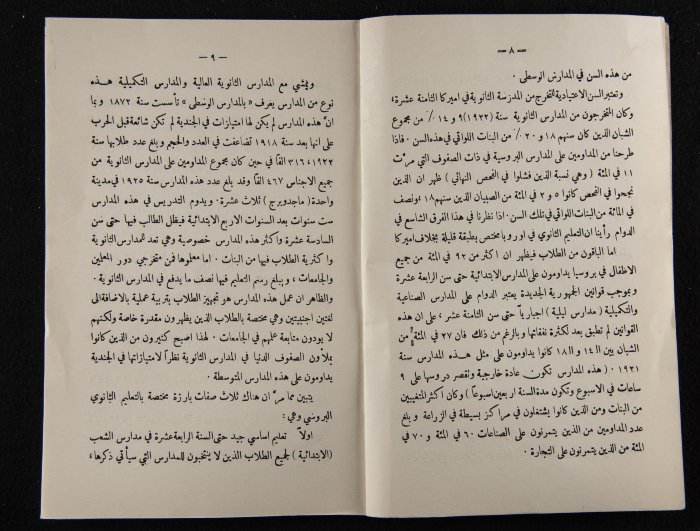 — ٨ —
من هذه السن في المدارس الوسطى .
وتعتبر السن الاعتيادية للتخرج من المدرسة الثانوية في اميركا الثامنة عشرة،
وكان المتخرجون من المدارس الثانوية سنة (١٩٢٢) ٩ و ١٤ ٪ من مجموع
الشبان الذين كان سنهم ١٨ و ٢٠ ٪ من البنات اللواتي في هذه السن . فاذا
طرحنا من المداومين على المدارس البروسية في ذات الصفوف التي مرّت
١١ في المئة ( وهي نسبة الذين فشلوا في الفحص النهائي ) ظهر ان الذين
نجحوا في الفحص كانوا ٥ و ٢ في المئة من الصبيان الذين سنهم ١٨، ونصف
في المائة من البنات اللواتي في تلك السن . اذا نظرنا في هذا الفرق الشاسع في
الدوام رأينا ان التعليم الثانوي في اوروبا مختص بطبقة قليلة بخلاف اميركا
اما الباقون من الطلاب فيظهر ان اكثر من ٩٢ في المئة من جميع
الاطفال في بروسيا يداومون على المدارس الابتدائية حتى سن الرابعة عشرة
وبموجب قوانين الجمهورية الجديدة يعتبر الدوام على المدارس الصناعية
والتكميلية ( مدارس ليلية ) اجبارياً حتى سن الثامنة عشر ، على ان هذه
القوانين لم تطبق بعد لكثرة نفقاتها وبالرغم من ذلك فان ٢٧ في المئة من
الشبان بين الـ ١٤ و الـ ١٨ كانوا يداومون على مثل هذه المدارس سنة
١٩٢١ . ( هذه المدارس تكون عادة خارجية وتقصر دروسها على ٩
ساعات في الاسبوع وتكون مدة السنة اربعين اسبوعاً ) وكان اكثر المتغيبين
من البنات ومن الذين كانوا يشتغلون في مراكز بسيطة في الزراعة و بلغ
عدد المداومين من الذين يتمرنون على الصناعات ٦٠ في المئة و ٧٠ في
المئة من الذين يتمرنون على التجارة .
— ٩ —
ويمشي مع المدارس الثانوية العالية والمدارس التكميلية هذه
نوع من المدارس يعرف « بالمدارس الوسطى » تأسست سنة ١٨٧٢ وبما
انّ هذه المدارس لم يكن لها امتيازات في الجندية لم تكن شائعة قبل الحرب
على انها بعد سنة ١٩١٨ تضاعفت في العدد والحجم وبلغ عدد طلابها سنة
١٩٢٢، ٣١٦ الفاً في حين كان مجموع المداومين على المدارس الثانوية من
جميع الاجناس ٤٦٧ الفاً وقد بلغ عدد هذه المدارس سنة ١٩٢٥ في مدينة
واحدة ( ماجدوبرج ) ثلاث عشرة . ويدوم التدريس في هذه المدارس
ست سنوات بعد السنوات الاربع الابتدائية فيظل الطالب فيها حتى سن
السادسة عشرة واكثر هذه المدارس خصوصية وهي تعد للمدارس الثانوية
واكثرية الطلاب فيها من البنات . اما معلموها فمن متخرجي دور المعلمين
والجامعات ، ويبلغ رسم التعليم فيها نصف ما يدفع في المدارس الثانوية .
والظاهر ان عمل هذه المدارس هو تجهيز الطلاب بتربية عملية بالاضافة الى
لغتين اجنبيتين وهي مختصة بالطلاب الذين يظهرون مقدرة خاصة ولكنهم
لا يودون متابعة عملهم في الجامعات . لهذا اصبح كثيرون من الذين كانوا
يملأون الصفوف الدنيا في المدارس الثانوية نظراً لامتيازاتها في الجندية
يداومون على هذه المدارس المتوسطة .
يتبين مما مرّ ان هناك ثلاث صفات بارزة مختصة بالتعليم الثانوي
البروسي وهي :
اولاً تعليم اساسي جيد حتى السنة الرابعة عشرة في مدارس الشعب
(الابتدائية ) لجميع الطلاب الذين لا ينتخبون للمدارس التي سيأتي ذكرها،